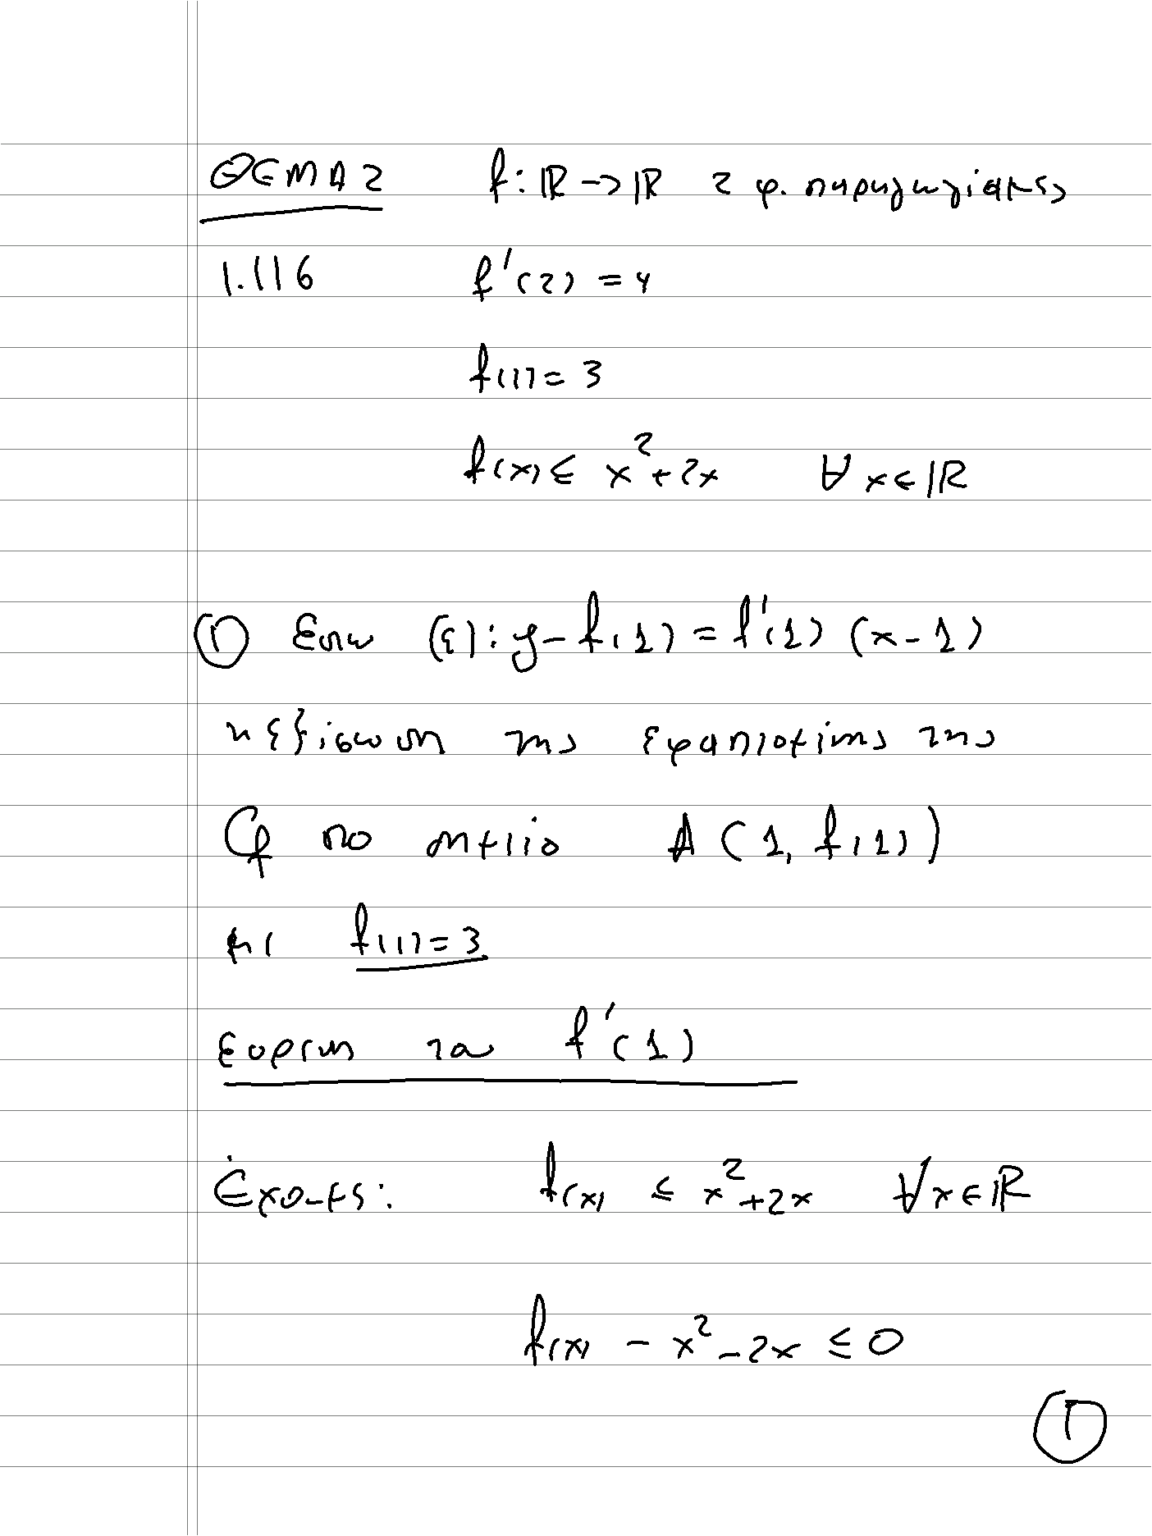 ΘΕΜΑ 2 f: ℝ → ℝ 2 φ. παραγωγίσιμες
1.116 f'(2) = 4
f(1) = 3
f(x) ≤ x² + 2x ∀ x ∈ ℝ
① Έστω (ε): y - f(1) = f'(1) (x - 1)
η εξίσωση της εφαπτομένης της
Cf στο σημείο A (1, f(1))
με f(1) = 3
Εύρεση του f'(1)
Έχουμε: f(x) ≤ x² + 2x ∀ x ∈ ℝ
f(x) - x² - 2x ≤ 0
①